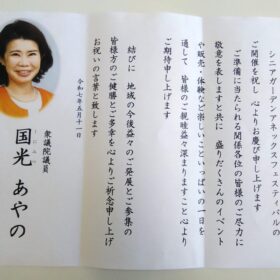 シニアガーデンアネックスフェスティバルの
ご開催を祝し 心よりお慶び申し上げます
ご準備に当たられた関係各位の皆様のご尽力に
敬意を表しますと共に 盛りだくさんのイベント
や販売・体験など楽しいこといっぱいの一日を
通して 皆様のご親睦益々深まりますこと心より
ご期待申し上げます
結びに 地域の今後益々のご発展とご参集の
皆様方のご健勝とご多幸を心よりご祈念申し上げ
お祝いの言葉と致します
令和七年五月十一日
衆議院議員
国光 あやの